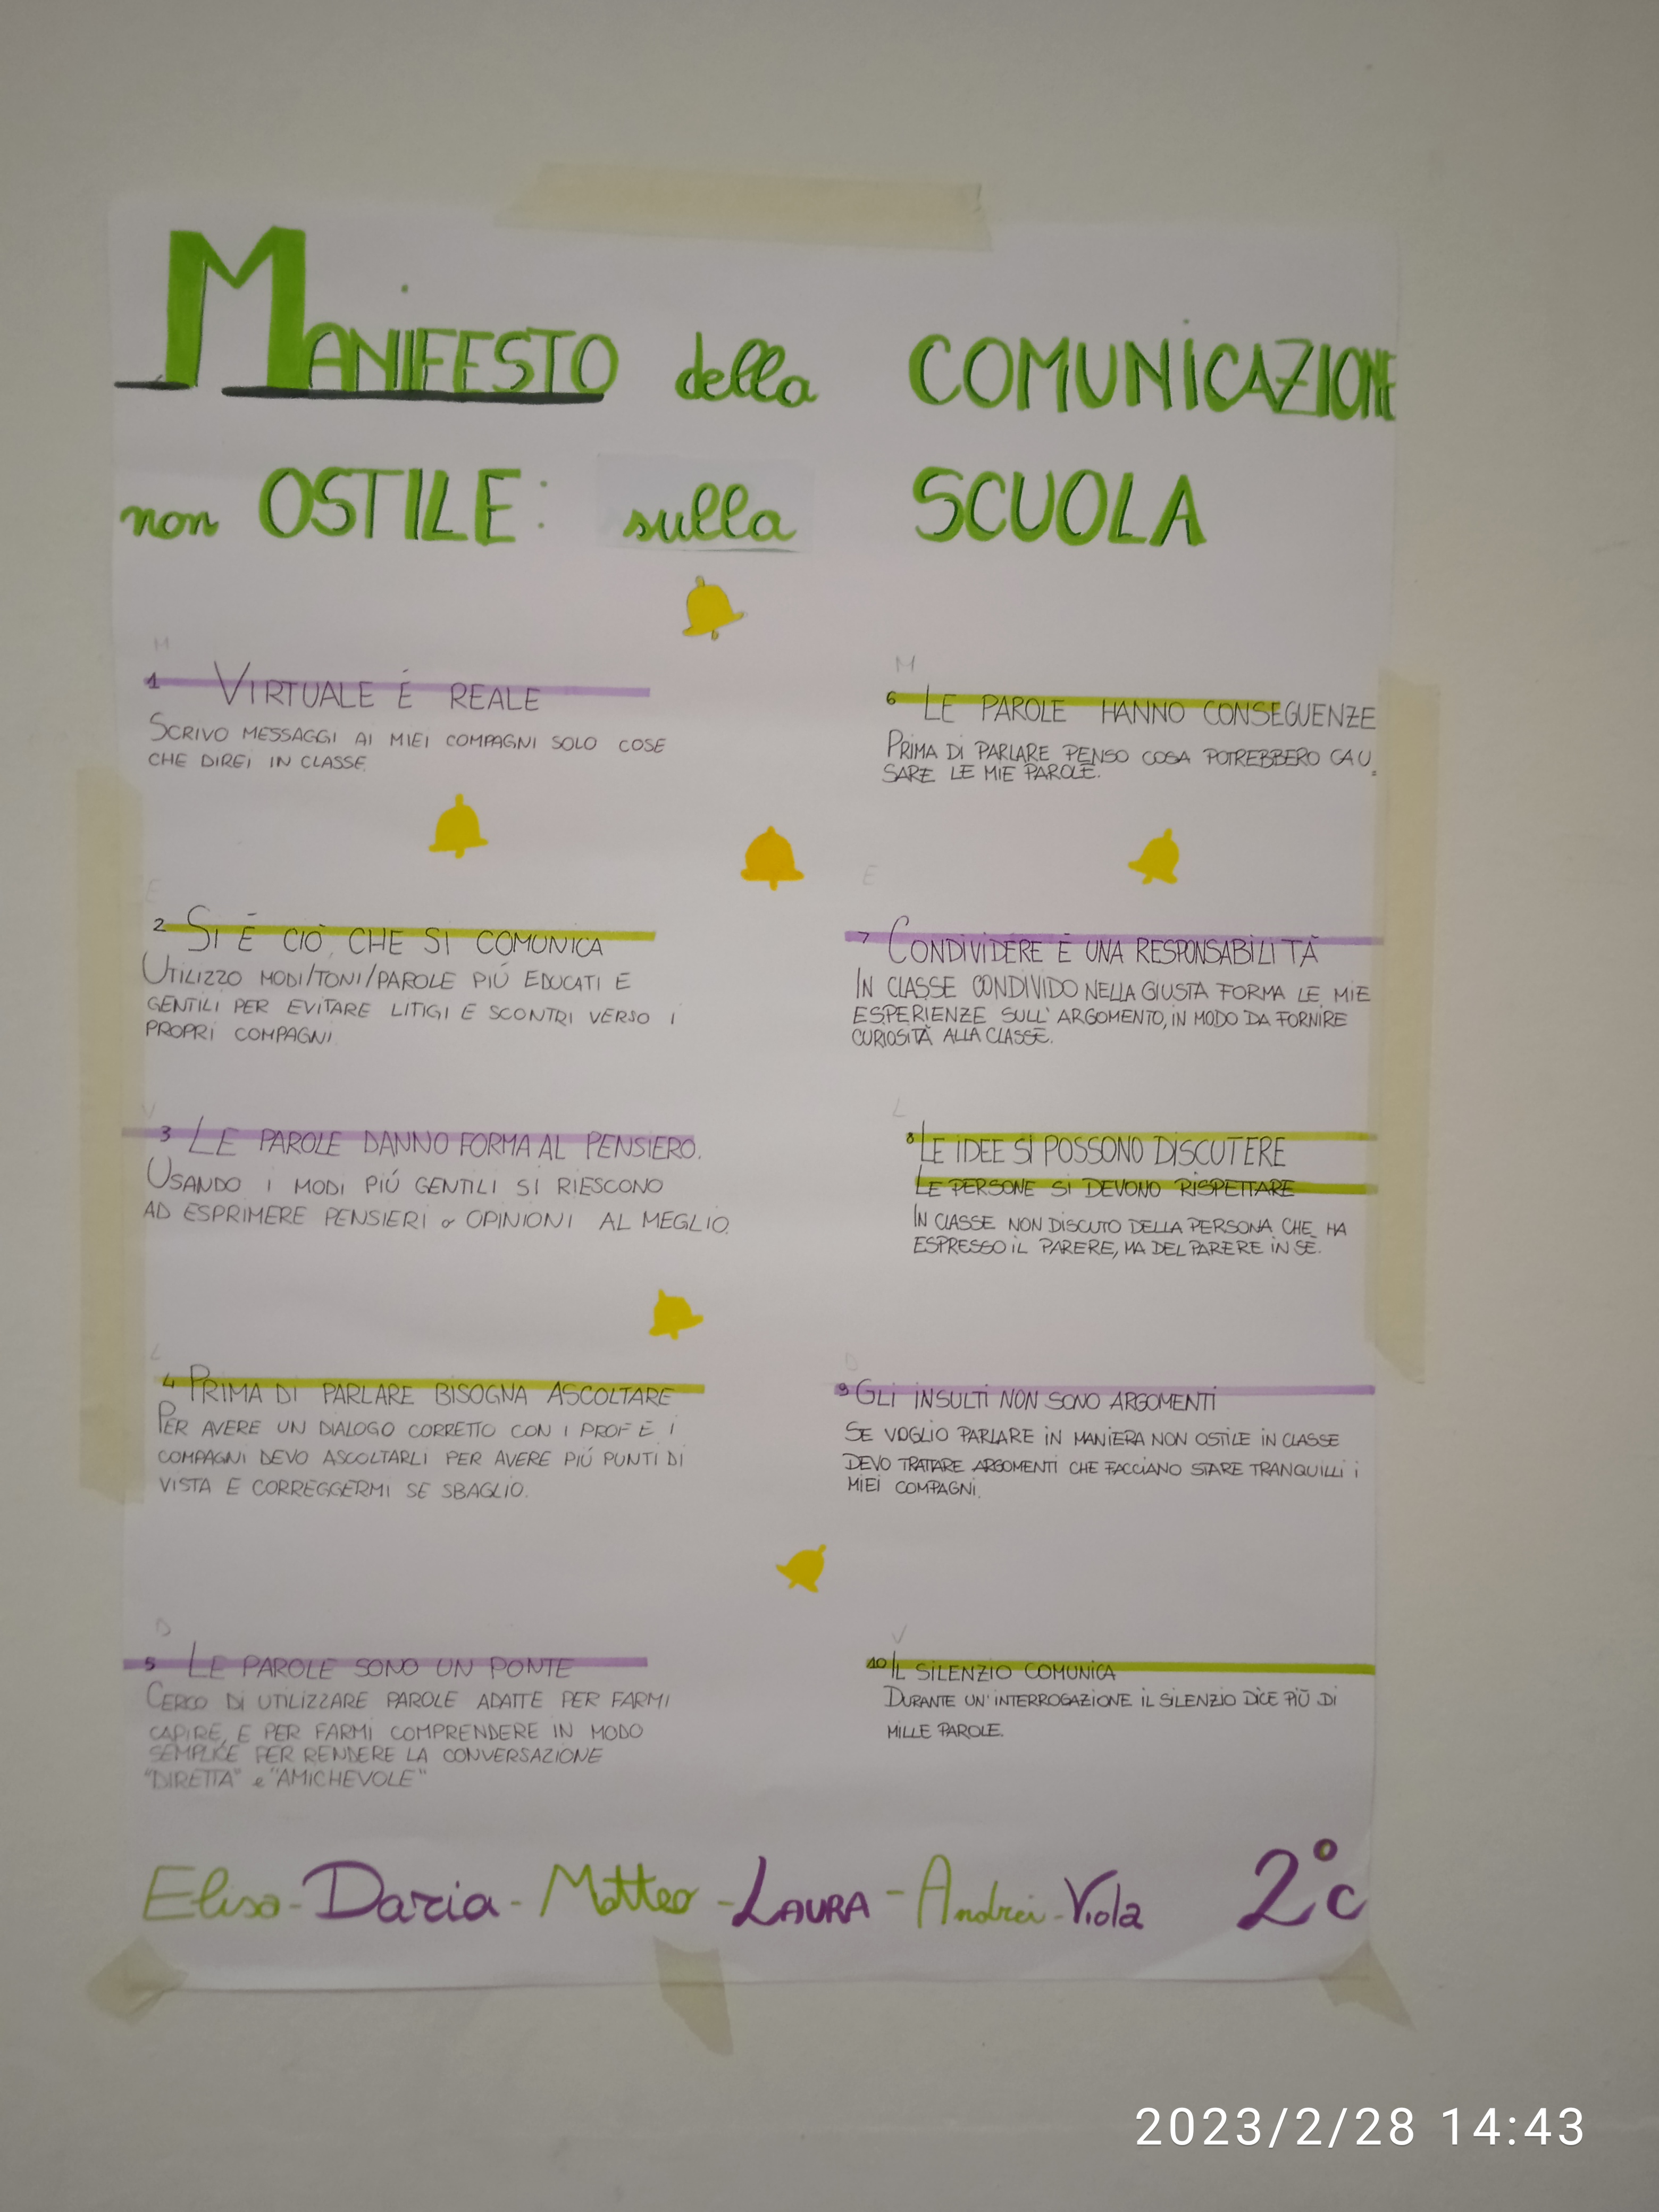 MANIFESTO della COMUNICAZIONE
non OSTILE: sulla SCUOLA
M
1 VIRTUALE É REALE
SCRIVO MESSAGGI AI MIEI COMPAGNI SOLO COSE
CHE DIREI IN CLASSE.
E
2 SI È CIÒ CHE SI COMUNICA
UTILIZZO MODI/TONI/PAROLE PIÚ EDUCATI E
GENTILI PER EVITARE LITIGI E SCONTRI VERSO I
PROPRI COMPAGNI.
V
3 LE PAROLE DANNO FORMA AL PENSIERO.
USANDO I MODI PIÚ GENTILI SI RIESCONO
AD ESPRIMERE PENSIERI o OPINIONI AL MEGLIO.
L
4 PRIMA DI PARLARE BISOGNA ASCOLTARE
PER AVERE UN DIALOGO CORRETTO CON I PROF E I
COMPAGNI DEVO ASCOLTARLI PER AVERE PIÚ PUNTI DI
VISTA E CORREGGERMI SE SBAGLIO.
D
5 LE PAROLE SONO UN PONTE
CERCO DI UTILIZZARE PAROLE ADATTE PER FARMI
CAPIRE, E PER FARMI COMPRENDERE IN MODO
SEMPLICE PER RENDERE LA CONVERSAZIONE
"DIRETTA" e "AMICHEVOLE"
M
6 LE PAROLE HANNO CONSEGUENZE
PRIMA DI PARLARE PENSO COSA POTREBBERO CAU=
SARE LE MIE PAROLE.
E
7 CONDIVIDERE È UNA RESPONSABILITÀ
IN CLASSE CONDIVIDO NELLA GIUSTA FORMA LE MIE
ESPERIENZE SULL'ARGOMENTO, IN MODO DA FORNIRE
CURIOSITÀ ALLA CLASSE.
L
8 LE IDEE SI POSSONO DISCUTERE
LE PERSONE SI DEVONO RISPETTARE
IN CLASSE NON DISCUTO DELLA PERSONA CHE HA
ESPRESSO IL PARERE, MA DEL PARERE IN SÈ.
D
9 GLI INSULTI NON SONO ARGOMENTI
SE VOGLIO PARLARE IN MANIERA NON OSTILE IN CLASSE
DEVO TRATTARE ARGOMENTI CHE FACCIANO STARE TRANQUILLI I
MIEI COMPAGNI.
V
10 IL SILENZIO COMUNICA
DURANTE UN'INTERROGAZIONE IL SILENZIO DICE PIÙ DI
MILLE PAROLE.
Elisa - Daria - Matteo - LAURA - Andrei - Viola 2°C
2023/2/28 14:43